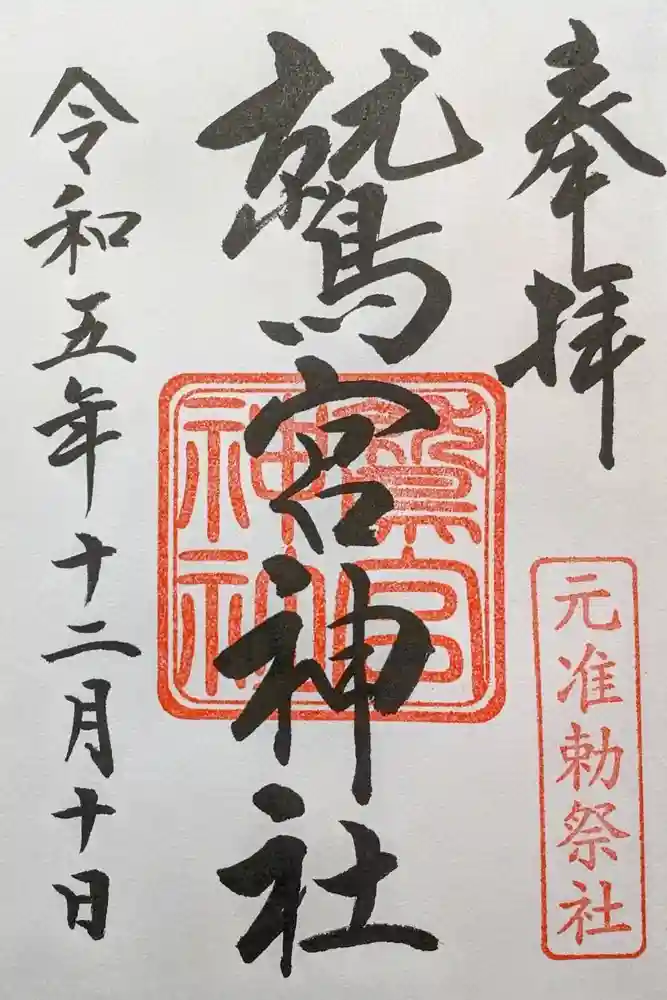 奉拝
元准勅祭社
鷲宮神社
鷲宮
神社
令和五年十二月十日